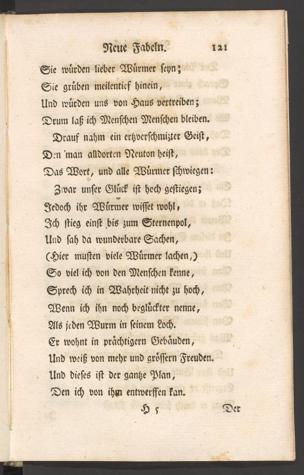 Neue Fabeln. 121
Sie würden lieber Würmer seyn;
Sie grüben meilentief hinein,
Und würden uns von Haus vertreiben;
Drum laß ich Menschen Menschen bleiben.
Drauf nahm ein erzverschmizter Geist,
Den man alldorten Neuton heist,
Das Wort, und alle Würmer schwiegen:
Zwar unser Glück ist hoch gestiegen;
Jedoch ihr Würmer wisset wohl,
Ich stieg einst bis zum Sternenpol,
Und sah da wunderbare Sachen,
(Hier musten viele Würmer lachen,)
So viel ich von den Menschen kenne,
Sprech ich in Wahrheit nicht zu hoch,
Wenn ich ihn noch beglückter nenne,
Als jeden Wurm in seinem Loch.
Er wohnt in prächtigern Gebäuden,
Und weiß von mehr und grössern Freuden.
Und dieses ist der gantze Plan,
Den ich von ihm entwerffen kan.
H 5 Der